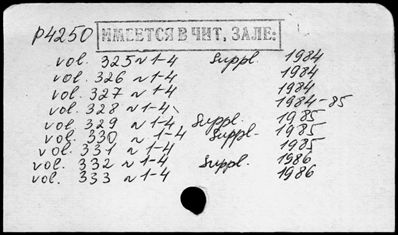 р4250 ИМЕЕТСЯ В ЧИТ. ЗАЛЕ:
vol. 325 N 1-4 Suppl. 1984
vol. 326 N 1-4 1984
vol. 327 N 1-4 1984
vol. 328 N 1-4 1984-85
vol. 329 N 1-4 Suppl. 1985
vol. 330 N 1-4 Suppl. 1985
vol. 331 N 1-4 1985
vol. 332 N 1-4 Suppl. 1986
vol. 333 N 1-4 1986